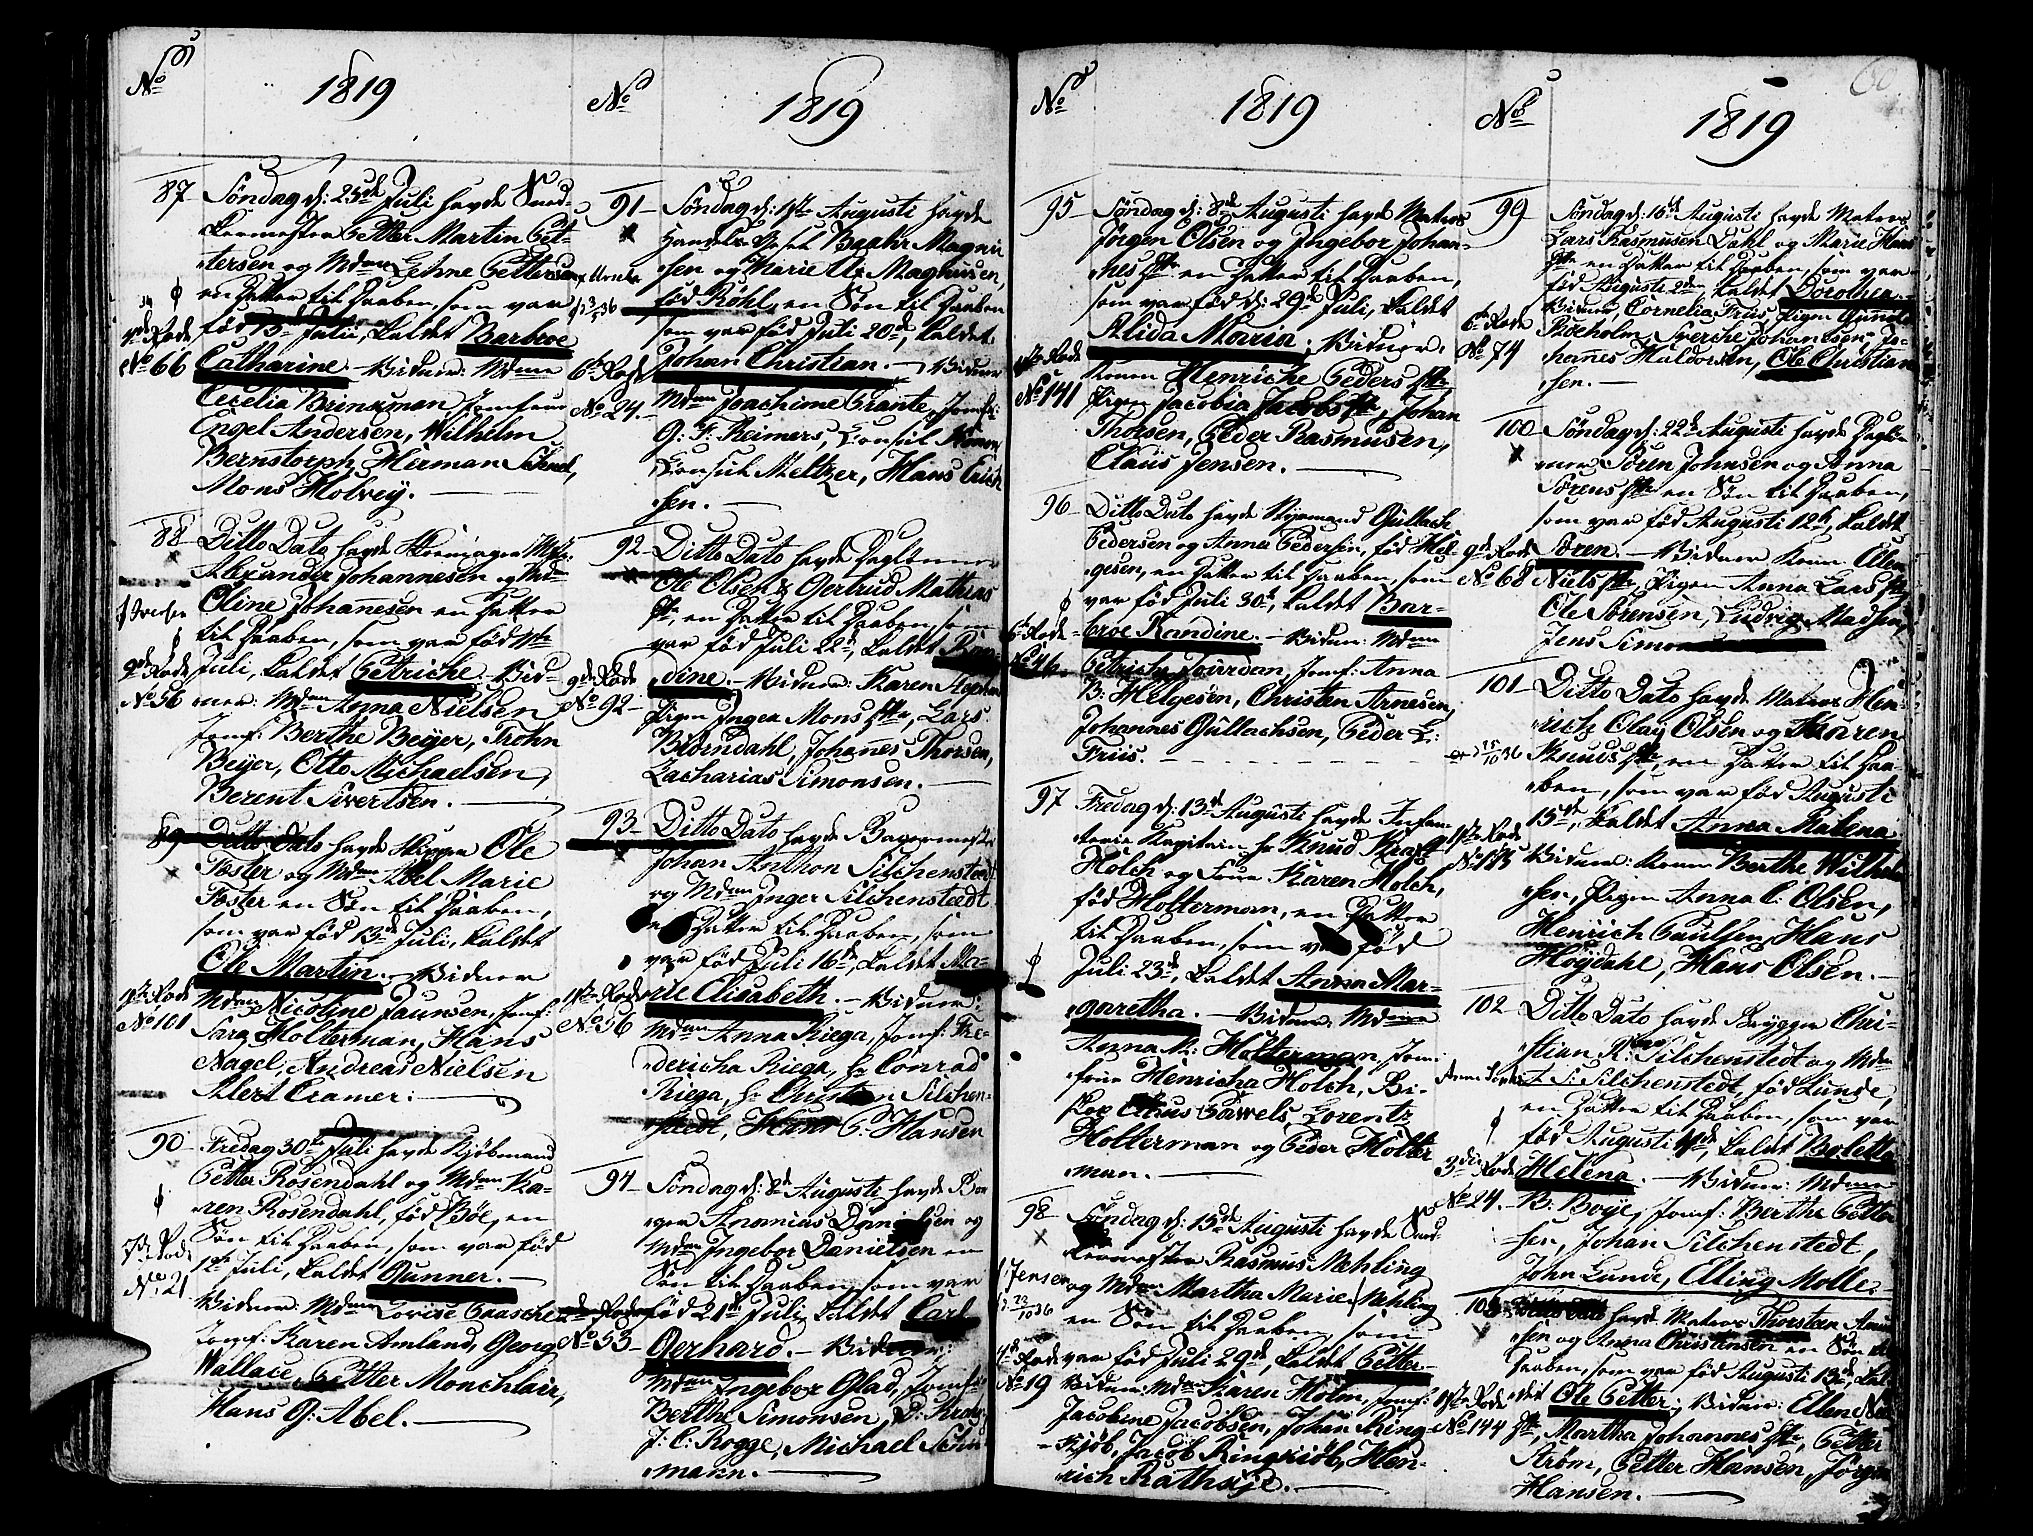 No
1819
87 Søndag d: 25de Juli havde Sned-
kermester Petter Martin Pet-
tersen og Mdme Lehne Pettersen
en Datter til Daaben, som var
født Juli, kaldet Barbroe
Catharine. – Vidner: Mdme
Cecelia Brinkman, Jomfrue
Engel Andersen, Wilhelm
Bernstorph, Herman
Mons Holvey.
Rode
No 66
88 Ditto Dato havde
Alexander Johannesen og Md-
Oline Johanesen en Datter
til Daaben, som var født
Juli, kaldet Petriche. Vid-
ner: Mdme Anna Nielsen
Jomf: Berthe Beyer, Frohn
Beyer, Otto Michaelsen,
Berent Sivertsen.
Rode
No 56
89 Ditto Dato havde Skipper Ole
Foster og Mdme Abel Marie
Foster en Søn til Daaben,
som var født 13de Juli, kaldet
Ole Martin. – Vidner
Mdme Nicoline Jaunsen, Jomf:
Sara Holterman, Hans
Nagel, Andreas Nielsen
Alert Cramer:
Rode
No 101
90 Fredag 30te Juli havde Kjøbmand
Petter Rosendahl og Mdme Ka-
ren Rosendahl, født Bøe, en
Søn til Daaben, som var født
Juli, kaldet Gunner. –
Vidner: Mdme Lovise Gaasche
Jomf: Karen Amland, Georg
Wallace, Petter Monchlair,
Hans G: Abel.
Rode
No 21
No
1819
91 Søndag d: 1ste Augusti havde
Baahr Magnu
sen og Marie Magnusen,
fød Røhl, en Søn til Daaben
som var født Juli 20de, kaldet
Johan Christian. – Vidner
Mdme Joachime Grante, Jomf:
G: F: Reimers, Consul
Consul Meltzer, Hans Erich
sen. –
6te Rode
No 24.
92 Ditto Dato havde Daglønner
Ole Olsen & Gertrud Mathias
dtr, en Datter til Daaben, som
var født Juli 22de, kaldet Ran-
dine. – Vidner: Karen
Pigen Inger Mons dtr, Lars
Biørndahl, Johanes Thorsen,
Zacharias Simonsen. –
9de Rode
No 92
93 Ditto Dato havde Bagermester
Johan Anthon Silchenstedt
og Mdme Inger Silchenstedt
en Datter til Daaben, som
var født Juli 16de, kaldet Ma-
rie Elisabeth. – Vidner:
Mdme Anna Riega, Jomf: Fre-
dericha Riega, Hr Conrad
Riega, Hr Christen Silchen-
stedt, Hans C: Hansen
Rode
No 56
94 Søndag d: 8de Augusti havde Bor
ger Ananias Danielsen og
Mdme Ingebor Danielsen en
Søn til Daaben, som var
født 21de Juli, kaldet Carl
Gerhard. – Vidner:
Mdme Ingebor Glad, Jomfr:
Berthe Simonsen,
J: C: Rogge, Michael
mann.
Rode
No 53
No
1819
95 Søndag d: 8de Augusti havde Matros
Jørgen Olsen og Ingebor Johan-
nes dtr en Datter til Daaben,
som var født d: 29de Juli, kaldet
Alida Maria. Vidner:
Konen Henriche Peders dtr
Pigen Jacobia Jacobs dtr, Johan
Thorsen, Peder Rasmusen,
Claus Jensen. –
Rode
No 141
96 Ditto Dato havde Styrmand Gullach
Pedersen og Anna Pedersen, fød Hel-
gesen, en Datter til Daaben, som
var født Juli 30te, kaldet Bar-
broe Randine. – Vidner: Mdme
Petriche Jourdan, Jomf: Anna
B: Helgesen, Christen Arnesen,
Johannes Gullachsen, Peder L:
Friis.
Rode
No 46
97 Fredag d: 13de Augusti havde Infan-
terie Kapitain Hr Knud Kraft
Holch og Frue Karen Holch,
fød Holterman, en Datter
til Daaben, som var født
Juli 23de, kaldet Anna Mar-
garetha. – Vidner: Mdme
Anna M: Holterman, Jom-
frue Henricha Holch, Bi-
skop Claus Pawels, Lorentz
Holterman og Peder Holter
man. –
98 Søndag d: 15de Augusti havde Sned-
kermester Rasmus Mehling
og Mdme Martha Marie Mehling
en Søn til Daaben, som
var født Juli 29de, kaldet Petter-
Vidner: Mdme Karen Holm, Jomf:
Jacobine Jacobsen, Johan Ring-
kjøb, Jacob Ringkiøb, Hen-
rich Rathsje.
Jensen
Rode
No 19
No
1819
99 Søndag d: 15de Augusti havde Matros
Lars Rasmusen Dahl og Marie Hans
dtr en Datter til Daaben, som var
født Augusti 2den, kaldet Dorothea. –
Vidner, Cornelia Friis, Pigen Gunild
Boeholm, Sverche Johannsen, Jo-
hanes Haldorsen, Ole Christian
sen. –
6te Rode
No 74
100 Søndag d: 22de Augusti havde Dagløn
ner Søren Johnsen og Anna
Sørens dtr en Søn til Daaben,
som var født Augusti 12te, kaldet
Søren. – Vidner Konen Ellen
Niels dtr, Pigen Anna Lars dtr,
Ole Sørensen, Ludvig Madsen,
Jens Simonsen
9de Rode
No 68
101 Ditto Dato havde Matros Hen-
rich Olay Olsen og Karen
Knuds dtr en Datter til Daa-
ben, som var født Augusti
15de, kaldet Anna Malena
Vidner: Konen Berthe Wilhelm
sen, Pigen Anna C: Olsen,
Henrich Paulsen, Hans
Høydahl, Hans Olsen. –
Rode
102 Ditto Dato havde Brygger Chri-
stian R: Silchenstedt og Mdme
S: Silchenstedt, fød Lunde,
en Datter til Daaben, som var
født Augusti, kaldet Boletta
Helena. – Vidner: Mdme
B: Boye, Jomf: Berthe Petter
sen, Johan Silchenstedt,
John Lunde, Elling Molle.
3die Rode
No 24.
103 Ditto Dato havde Matros Thorsten
sen og Anna Christensen en Søn til
Daaben, som var født Augusti 13de, kal-
det Ole Petter. Vidner: Ellen
dtr, Martha Johannes dtr, Petter
Strøm, Petter Hansen, Jørgen
Hansen. –
Rode
No 144